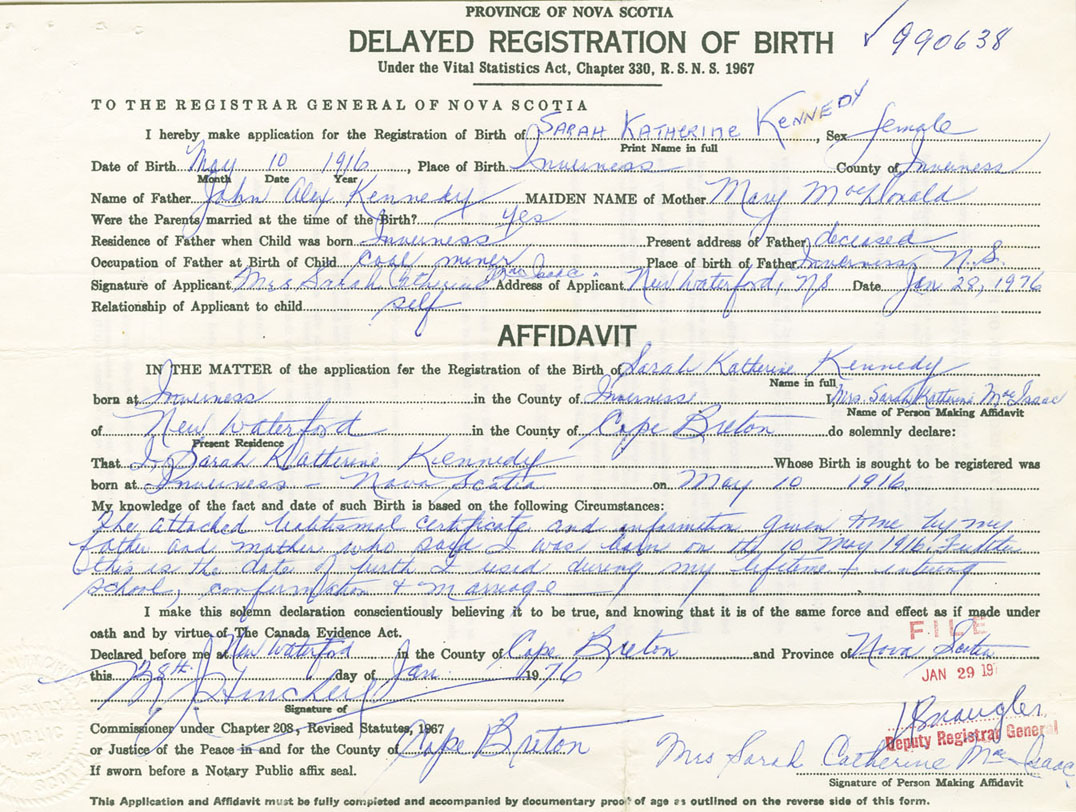 PROVINCE OF NOVA SCOTIA
DELAYED REGISTRATION OF BIRTH ✓ 990638
Under the Vital Statistics Act, Chapter 330, R. S. N. S. 1967
TO THE REGISTRAR GENERAL OF NOVA SCOTIA
I hereby make application for the Registration of Birth of SARAH KATHERINE KENNEDY, Sex female
Print Name in full
Date of Birth May 10 1916, Place of Birth Inverness County of Inverness
Month Date Year
Name of Father John Alex Kennedy MAIDEN NAME of Mother Mary MacDonald
Were the Parents married at the time of the Birth? yes
Residence of Father when Child was born Inverness Present address of Father deceased
Occupation of Father at Birth of Child coal miner Place of birth of Father Inverness N.S.
Signature of Applicant Mrs Sarah Catherine MacIsaac Address of Applicant New Waterford, NS Date Jan 28, 1976
Relationship of Applicant to child self
AFFIDAVIT
IN THE MATTER of the application for the Registration of the Birth of Sarah Katherine Kennedy
Name in full
born at Inverness in the County of Inverness I, Mrs. Sarah Katherine MacIsaac
Name of Person Making Affidavit
of New Waterford in the County of Cape Breton do solemnly declare:
Present Residence
That I, Sarah Katherine Kennedy Whose Birth is sought to be registered was
born at Inverness - Nova Scotia on May 10 1916
My knowledge of the fact and date of such Birth is based on the following Circumstances:
The attached baptismal certificate and information given to me by my
father and mother who said I was born on the 10 May 1916.
this is the date of birth I used during my lifetime + entering
school, confirmation & marriage
I make this solemn declaration conscientiously believing it to be true, and knowing that it is of the same force and effect as if made under
oath and by virtue of The Canada Evidence Act.
Declared before me at New Waterford in the County of Cape Breton and Province of Nova Scotia
FILE
this 28th day of Jan 1976
JAN 29 197
Signature of
Commissioner under Chapter 208, Revised Statutes, 1967
or Justice of the Peace in and for the County of Cape Breton
Deputy Registrar General
Mrs Sarah Catherine MacIsaac
If sworn before a Notary Public affix seal.
Signature of Person Making Affidavit
This Application and Affidavit must be fully completed and accompanied by documentary proof of age as outlined on the reverse side of this form.